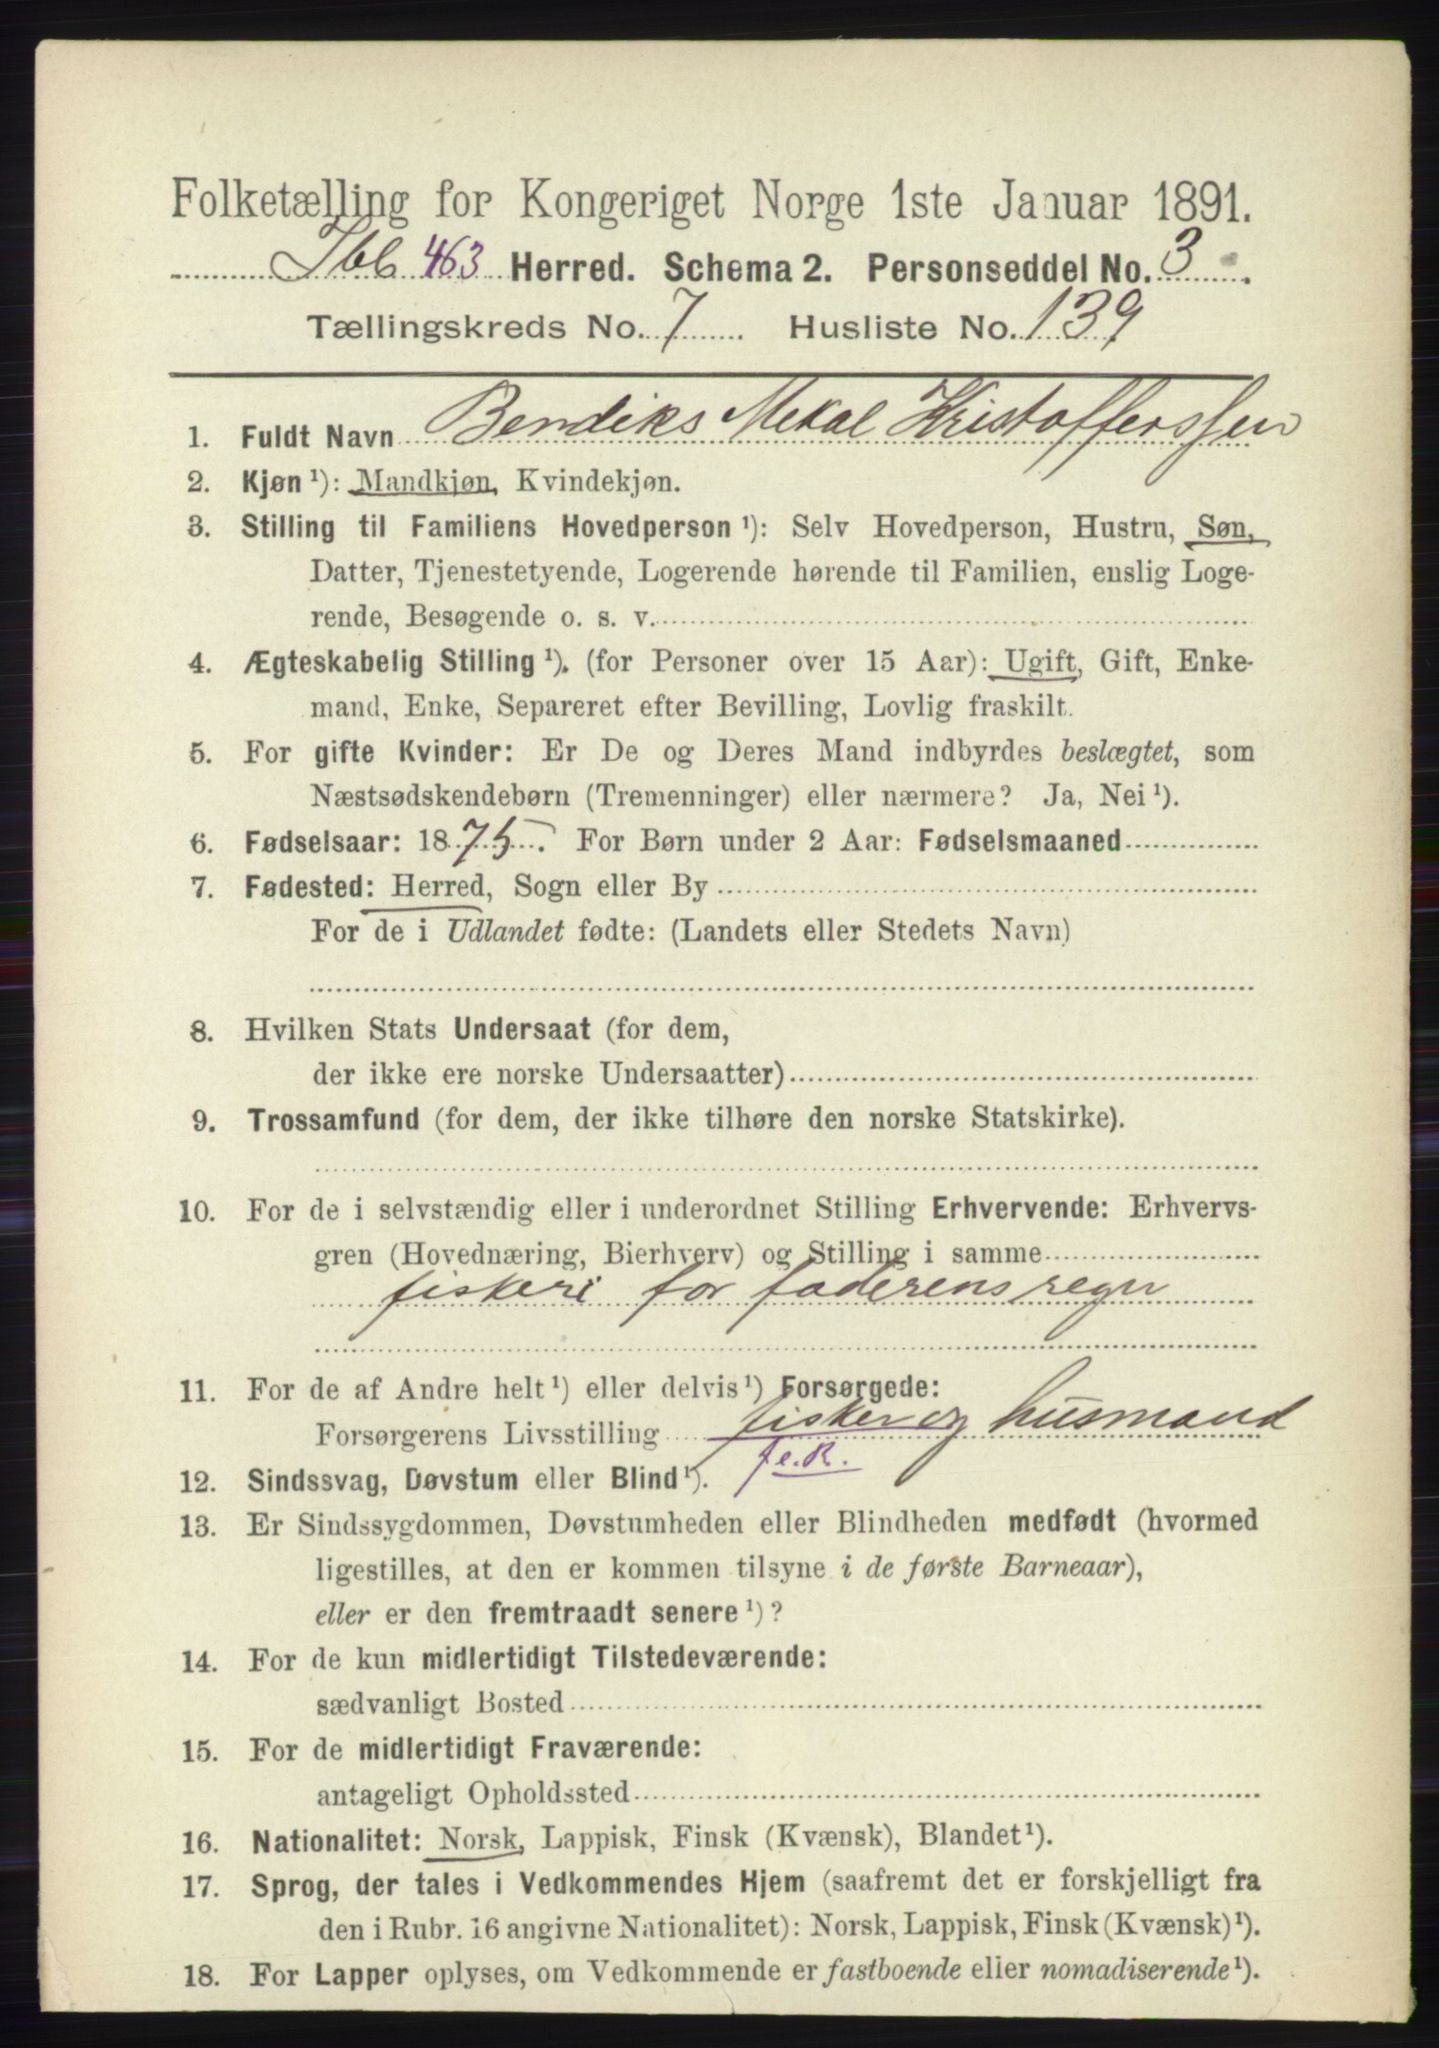 Folketælling for Kongeriget Norge 1ste Januar 1891.
Ibb 463 Herred. Schema 2. Personseddel No. 3
Tællingskreds No. 7 Husliste No. 139
1. Fuldt Navn Bendiks Mekal Kristofferssen
2. Kjøn ¹): Mandkjøn, Kvindekjøn.
3. Stilling til Familiens Hovedperson ¹): Selv Hovedperson, Hustru, Søn,
Datter, Tjenestetyende, Logerende hørende til Familien, enslig Loge-
rende, Besøgende o. s. v.
4. Ægteskabelig Stilling ¹). (for Personer over 15 Aar): Ugift, Gift, Enke-
mand, Enke, Separeret efter Bevilling, Lovlig fraskilt.
5. For gifte Kvinder: Er De og Deres Mand indbyrdes beslægtet, som
Næstsødskendebørn (Tremenninger) eller nærmere? Ja, Nei ¹).
6. Fødselsaar: 1875. For Børn under 2 Aar: Fødselsmaaned
7. Fødested: Herred, Sogn eller By
For de i Udlandet fødte: (Landets eller Stedets Navn)
8. Hvilken Stats Undersaat (for dem,
der ikke ere norske Undersaatter)
9. Trossamfund (for dem, der ikke tilhøre den norske Statskirke).
10. For de i selvstændig eller i underordnet Stilling Erhvervende: Erhvervs-
gren (Hovednæring, Bierhverv) og Stilling i samme
fiskeri for faderens regn
11. For de af Andre helt ¹) eller delvis ¹) Forsørgede:
Forsørgerens Livsstilling fisker og husmand
12. Sindssvag, Døvstum eller Blind ¹). f.e.R.
13. Er Sindssygdommen, Døvstumheden eller Blindheden medfødt (hvormed
ligestilles, at den er kommen tilsyne i de første Barneaar),
eller er den fremtraadt senere ¹)?
14. For de kun midlertidigt Tilstedeværende:
sædvanligt Bosted
15. For de midlertidigt Fraværende:
antageligt Opholdssted
16. Nationalitet: Norsk, Lappisk, Finsk (Kvænsk), Blandet ¹).
17. Sprog, der tales i Vedkommendes Hjem (saafremt det er forskjelligt fra
den i Rubr. 16 angivne Nationalitet): Norsk, Lappisk, Finsk (Kvænsk) ¹).
18. For Lapper oplyses, om Vedkommende er fastboende eller nomadiserende ¹).